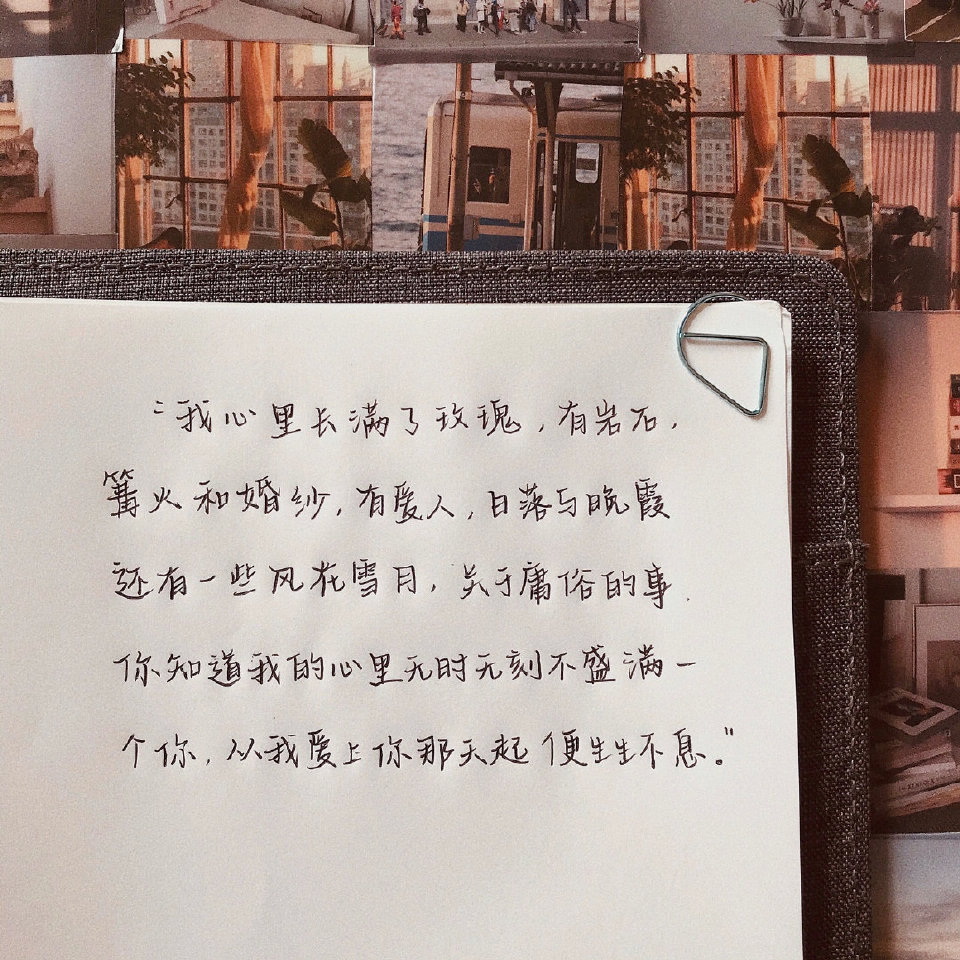 “我心里长满了玫瑰，有岩石，
篝火和婚纱，有爱人，日落与晚霞
还有一些风花雪月，关于庸俗的事.
你知道我的心里无时无刻不盛满一
个你，从我爱上你那天起便生生不息。”